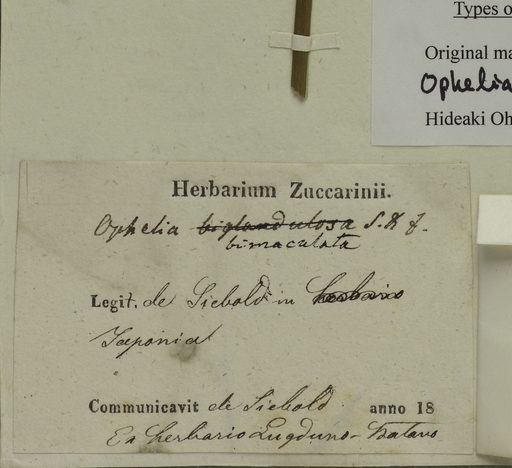 Types o
Original ma
Ophelia
Hideaki Oh
Herbarium Zuccarinii.
Ophelia biglandulosa S. & Z.
bimaculata
Legit. de Siebold in herbario
Japonia
Communicavit de Siebold anno 18
Ex herbario Lugduno-Batavo